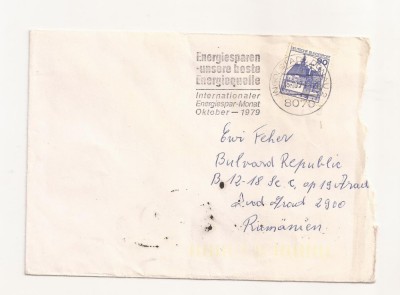 Energiesparen
-unsere beste
Energiequelle
Internationaler
Energiespar-Monat
Oktober - 1979
90
8070
Ewi Feher
Bulvard Republic
B, 12-18 Sc C, op 19 Arad
Jud Arad 2900
Rumänien